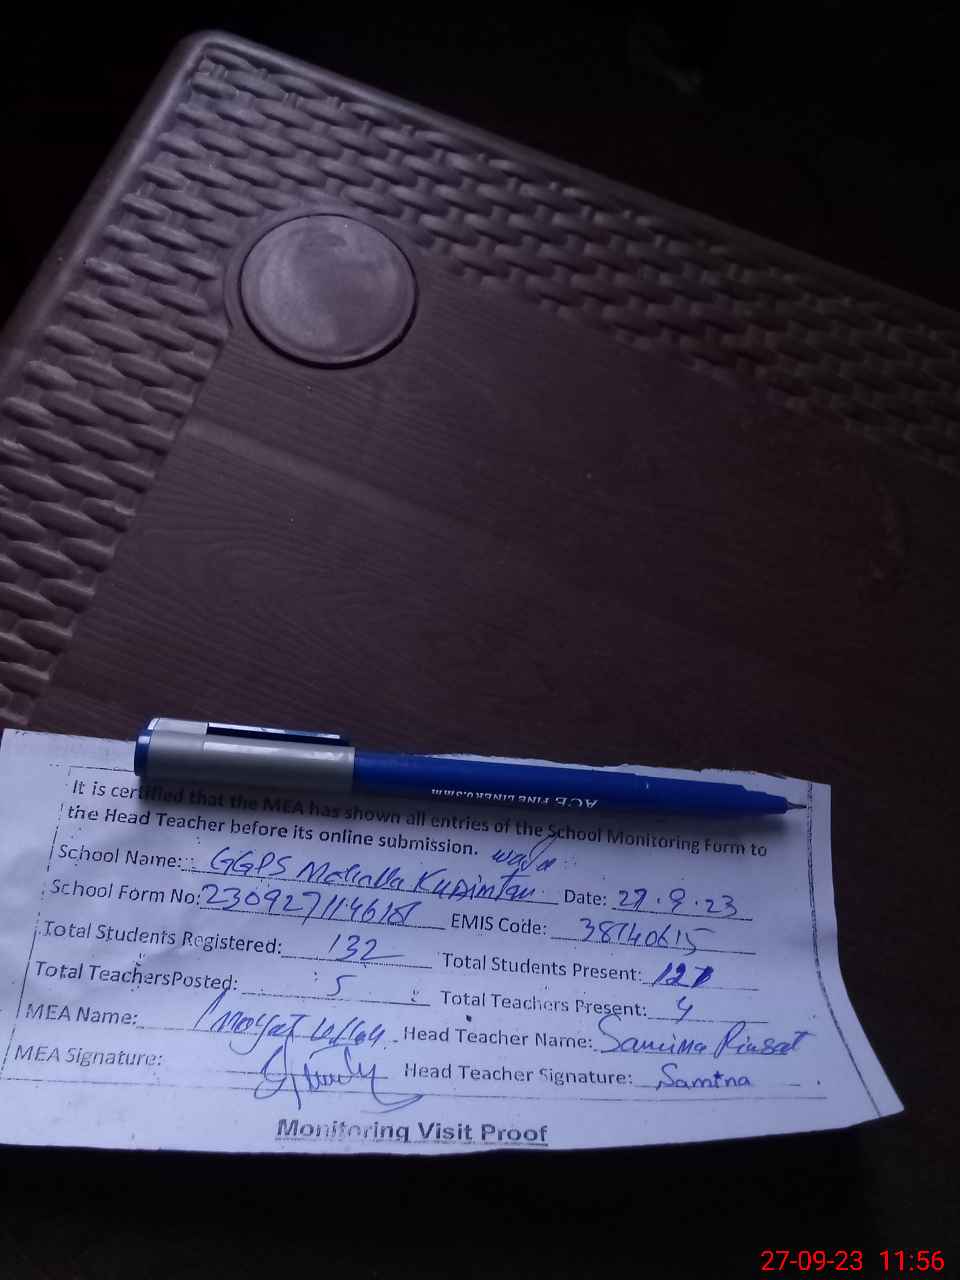 ACE FINE LINER 0.5mm
It is certified that the MEA has shown all entries of the School Monitoring Form to
the Head Teacher before its online submission.
School Name: GGPS Mohalla Date: 27.9.23
School Form No: EMIS Code: 38140615
Total Students Registered: 132 Total Students Present: 121
Total TeachersPosted: 5 Total Teachers Present: 4
MEA Name: Head Teacher Name: Samina
MEA Signature: Head Teacher Signature: Samina
Monitoring Visit Proof
27-09-23 11:56